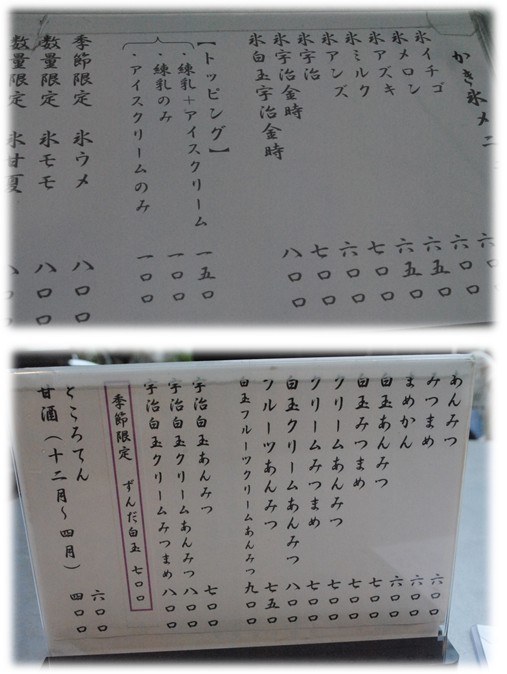 かき氷メニ
氷イチゴ 六〇〇
氷メロン 六〇〇
氷アズキ 六五〇
氷ミルク 六五〇
氷アンズ 七〇〇
氷宇治 六〇〇
氷宇治金時 七〇〇
氷白玉宇治金時 八〇〇
【トッピング】
・練乳＋アイスクリーム 一五〇
・練乳のみ 一〇〇
・アイスクリームのみ 一〇〇
季節限定 氷ウメ 八〇〇
数量限定 氷モモ 八〇〇
数量限定 氷甘夏 八〇〇
あんみつ 六〇〇
みつまめ 六〇〇
まめかん 六〇〇
白玉あんみつ 七〇〇
白玉みつまめ 七〇〇
クリームあんみつ 七〇〇
クリームみつまめ 七〇〇
白玉クリームあんみつ 八〇〇
フルーツあんみつ 七五〇
白玉フルーツクリームあんみつ 九〇〇
宇治白玉あんみつ 七〇〇
宇治白玉クリームあんみつ 八〇〇
宇治白玉クリームみつまめ 八〇〇
季節限定 ずんだ白玉 七〇〇
ところてん 六〇〇
甘酒（十二月～四月） 四〇〇